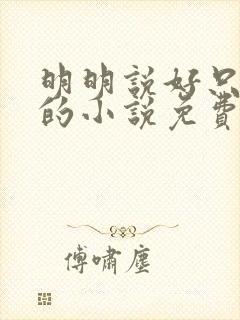 明明說好只
的小說免費
傅嘯塵